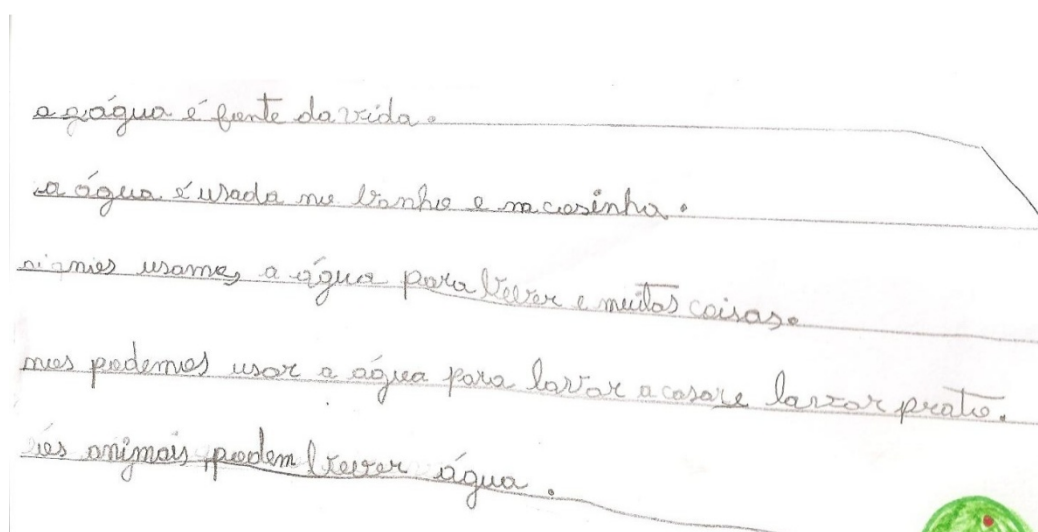 a água é fonte da vida.
a água é usada no banho e na cosinha.
nos usamos a água para bever e muitas coisas.
nos podemos usar a água para lavar a casa e lavar prato.
os animais podem bever água.